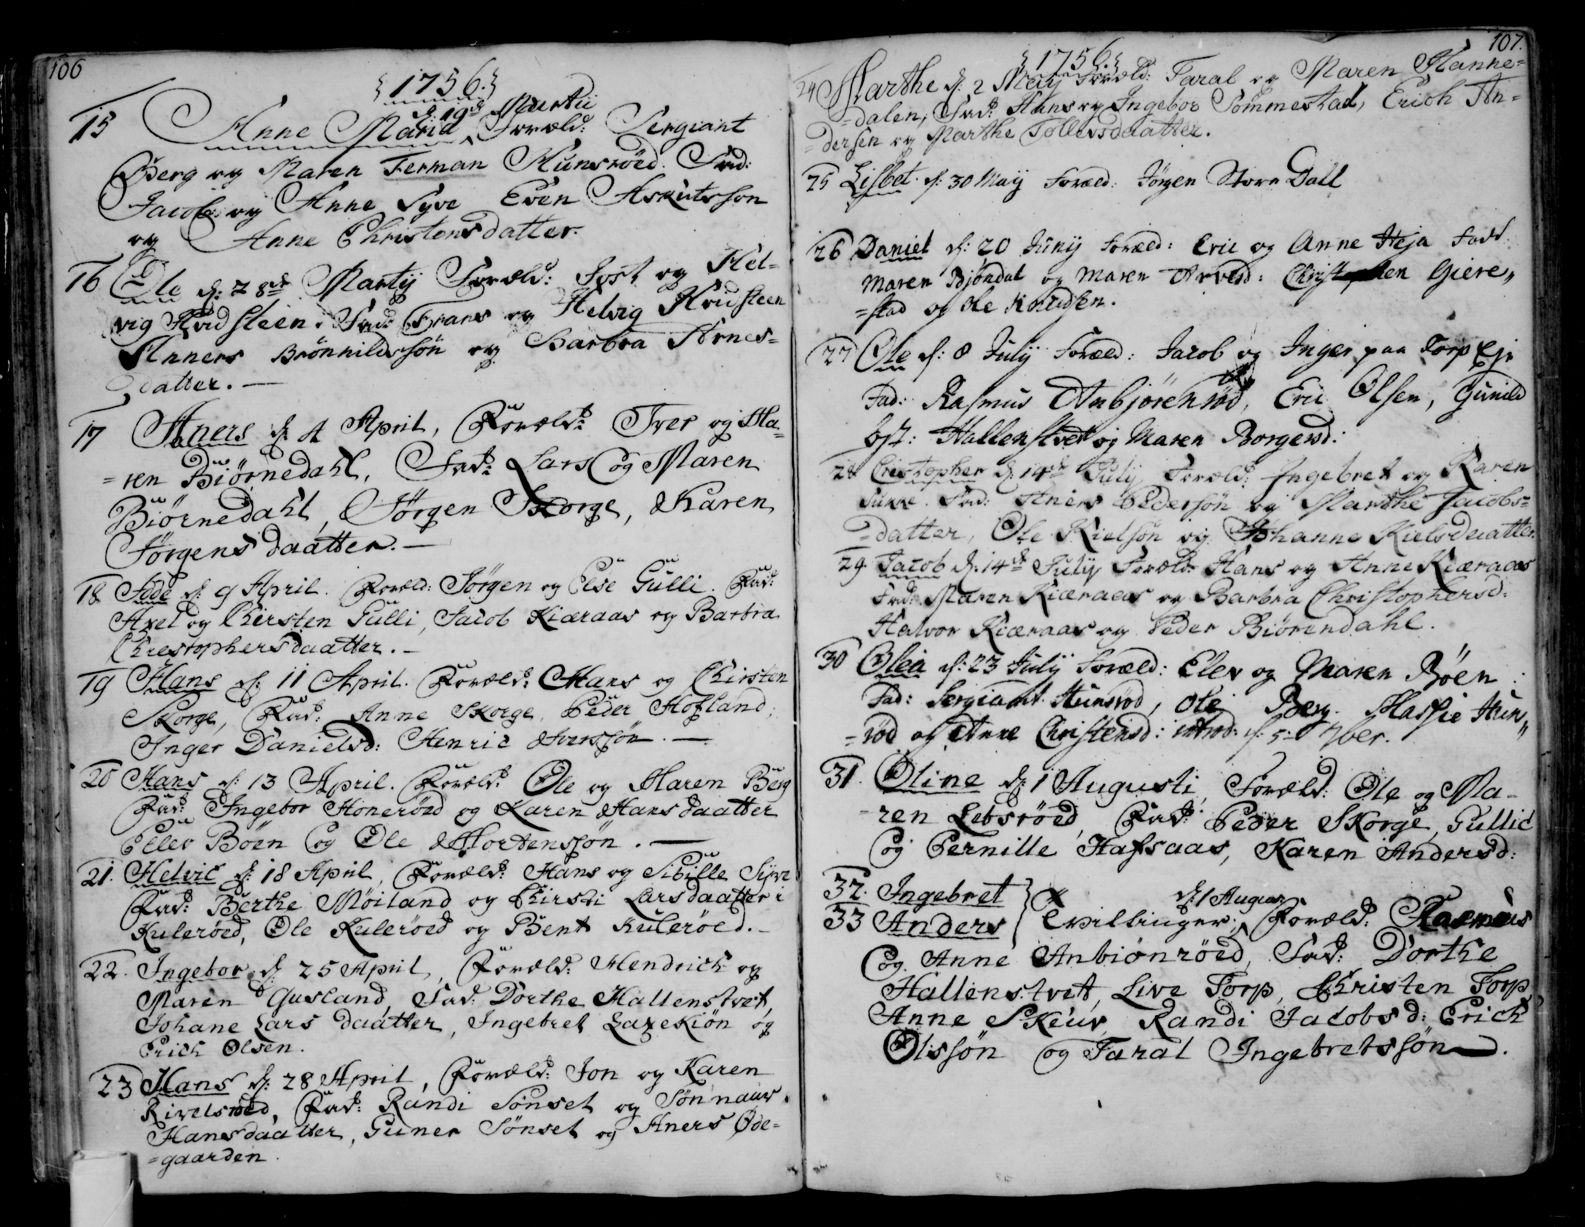 106
1756
d. 19de Martii
15 Anne Maria, Foræld: Sergiant
Berg og Maren Ferman Hunsrøed. Fad:
Jacob og Anne Syve Even Askutsson
og Anne Christensdatter.
16 Ole d: 28de Martij Foræld: Jost og Hel-
vig Hvidsteen. Fad: Frans og Helvig Hvidsteen
Anners Brønnildssøn og Barbra Arnes-
datter. —
17 Aners d: 4 April, Foræld: Iver og Ma-
=ren Biørnedahl, Fad: Lars og Maren
Biørnedahl, Jørgen Skorge, Karen
Jørgensdaatter. —
18 d: 9 April. Foræld: Jørgen og Else Gulli Fad:
Axel og Chirsten Gulli, Jacob Kiæraas og Barbra
Chrestophersdaatter. —
19 Hans d: 11 April. Foræld: Hans og Chirsten
Skorge, Fad: Anne Skorge Peder Hofland,
Inger Danielsd: Henric Svenssøn. —
20 Hans d: 13 April. Foræld: Ole og Maren Berg
Fad: Ingebor Honerøed og Karen Hansdaatter
Ellev Bøen Og Ole Mortenssøn. —
21. Helvic d: 18 April, Foræld: Hans og Sibille Sijve
Fad: Berthe Møiland og Chirsti Larsdaatter i
Kulerøed, Ole Kulerøed og Bent Kulerøed. —
22. Ingebor d: 25 April, Foræld: Hendrich og
Maren Gusland, Fad: Dorthe Hallenstvet,
Johane Larsdaatter, Ingebret og
Erich Olsen.
23 Hans d: 28 April, Foræld: Jon og Karen
Rivelsrød, Fad: Randi Sønset og Sønnauv
Hansdaatter, Guner Sønset og Aners Øde-
=gaarden.
107.
1756
24 Marthe d. 2 Maij Foræld: Taral og Maren Manne=
=dalen, Fad: Hans og Ingebor Sommestad, Erich An=
=dersen og Marthe Tollevsdaatter.
25 Lisbet d: 30 Maij Foræld: Jørgen Store Dall
26 Daniel d: 20 Junij Foræld: Eric og Anne Heja Fadd
Maren Bjøndal og Maren Arvesd: Christen Giere,,
=stad og Ole
27 Ole d: 8 July Foræld: Jacob og Inger paa Torp Ej.
Fad: Rasmus Aabjørenrød, Eric Olsen, Gunild
Hallenstvet og Maren Borgersd:
28 Cristopher d. 14de July Foræld: Ingebret og Karen
Fad: Aners Pedersøn og Marthe Jacobs=
=datter, Ole Kielsøn og Johanne Kielsdaatter
29 Jacob d. 14de July Foræld: Hans og Anne Kiæraas
Fad: Maren Kiæraas og Barbra Christophersd:
Halvor Kiæraas og Peder Biørendahl.
30 Olea d: 23 July Foræld: Elev og Maren Bøen:
Fad: Sergiant Hunsrød, Ole Berg. Massie Hun,,
=rød og Anne Christensd: introd: d: 5 7ber.
31. Oline d: 1 Augusti, Foræld: Ole og Ma-
-ren Lebsrøed, Fad: Peder Skorge, Gullic
Og Pernille Hafsaas, Karen Andersd:
32. Ingebret
33 Anders } Tvillinger, d: 1 August Foræld: Rasmus
Og Anne Anbiønrøed, Fad: Dorthe
Hallenstvet, Live Torp, Christen Torp
Anne Skeiv, Randi Jacobsd: Erich
Olssøn og Taral Ingebretssøn.